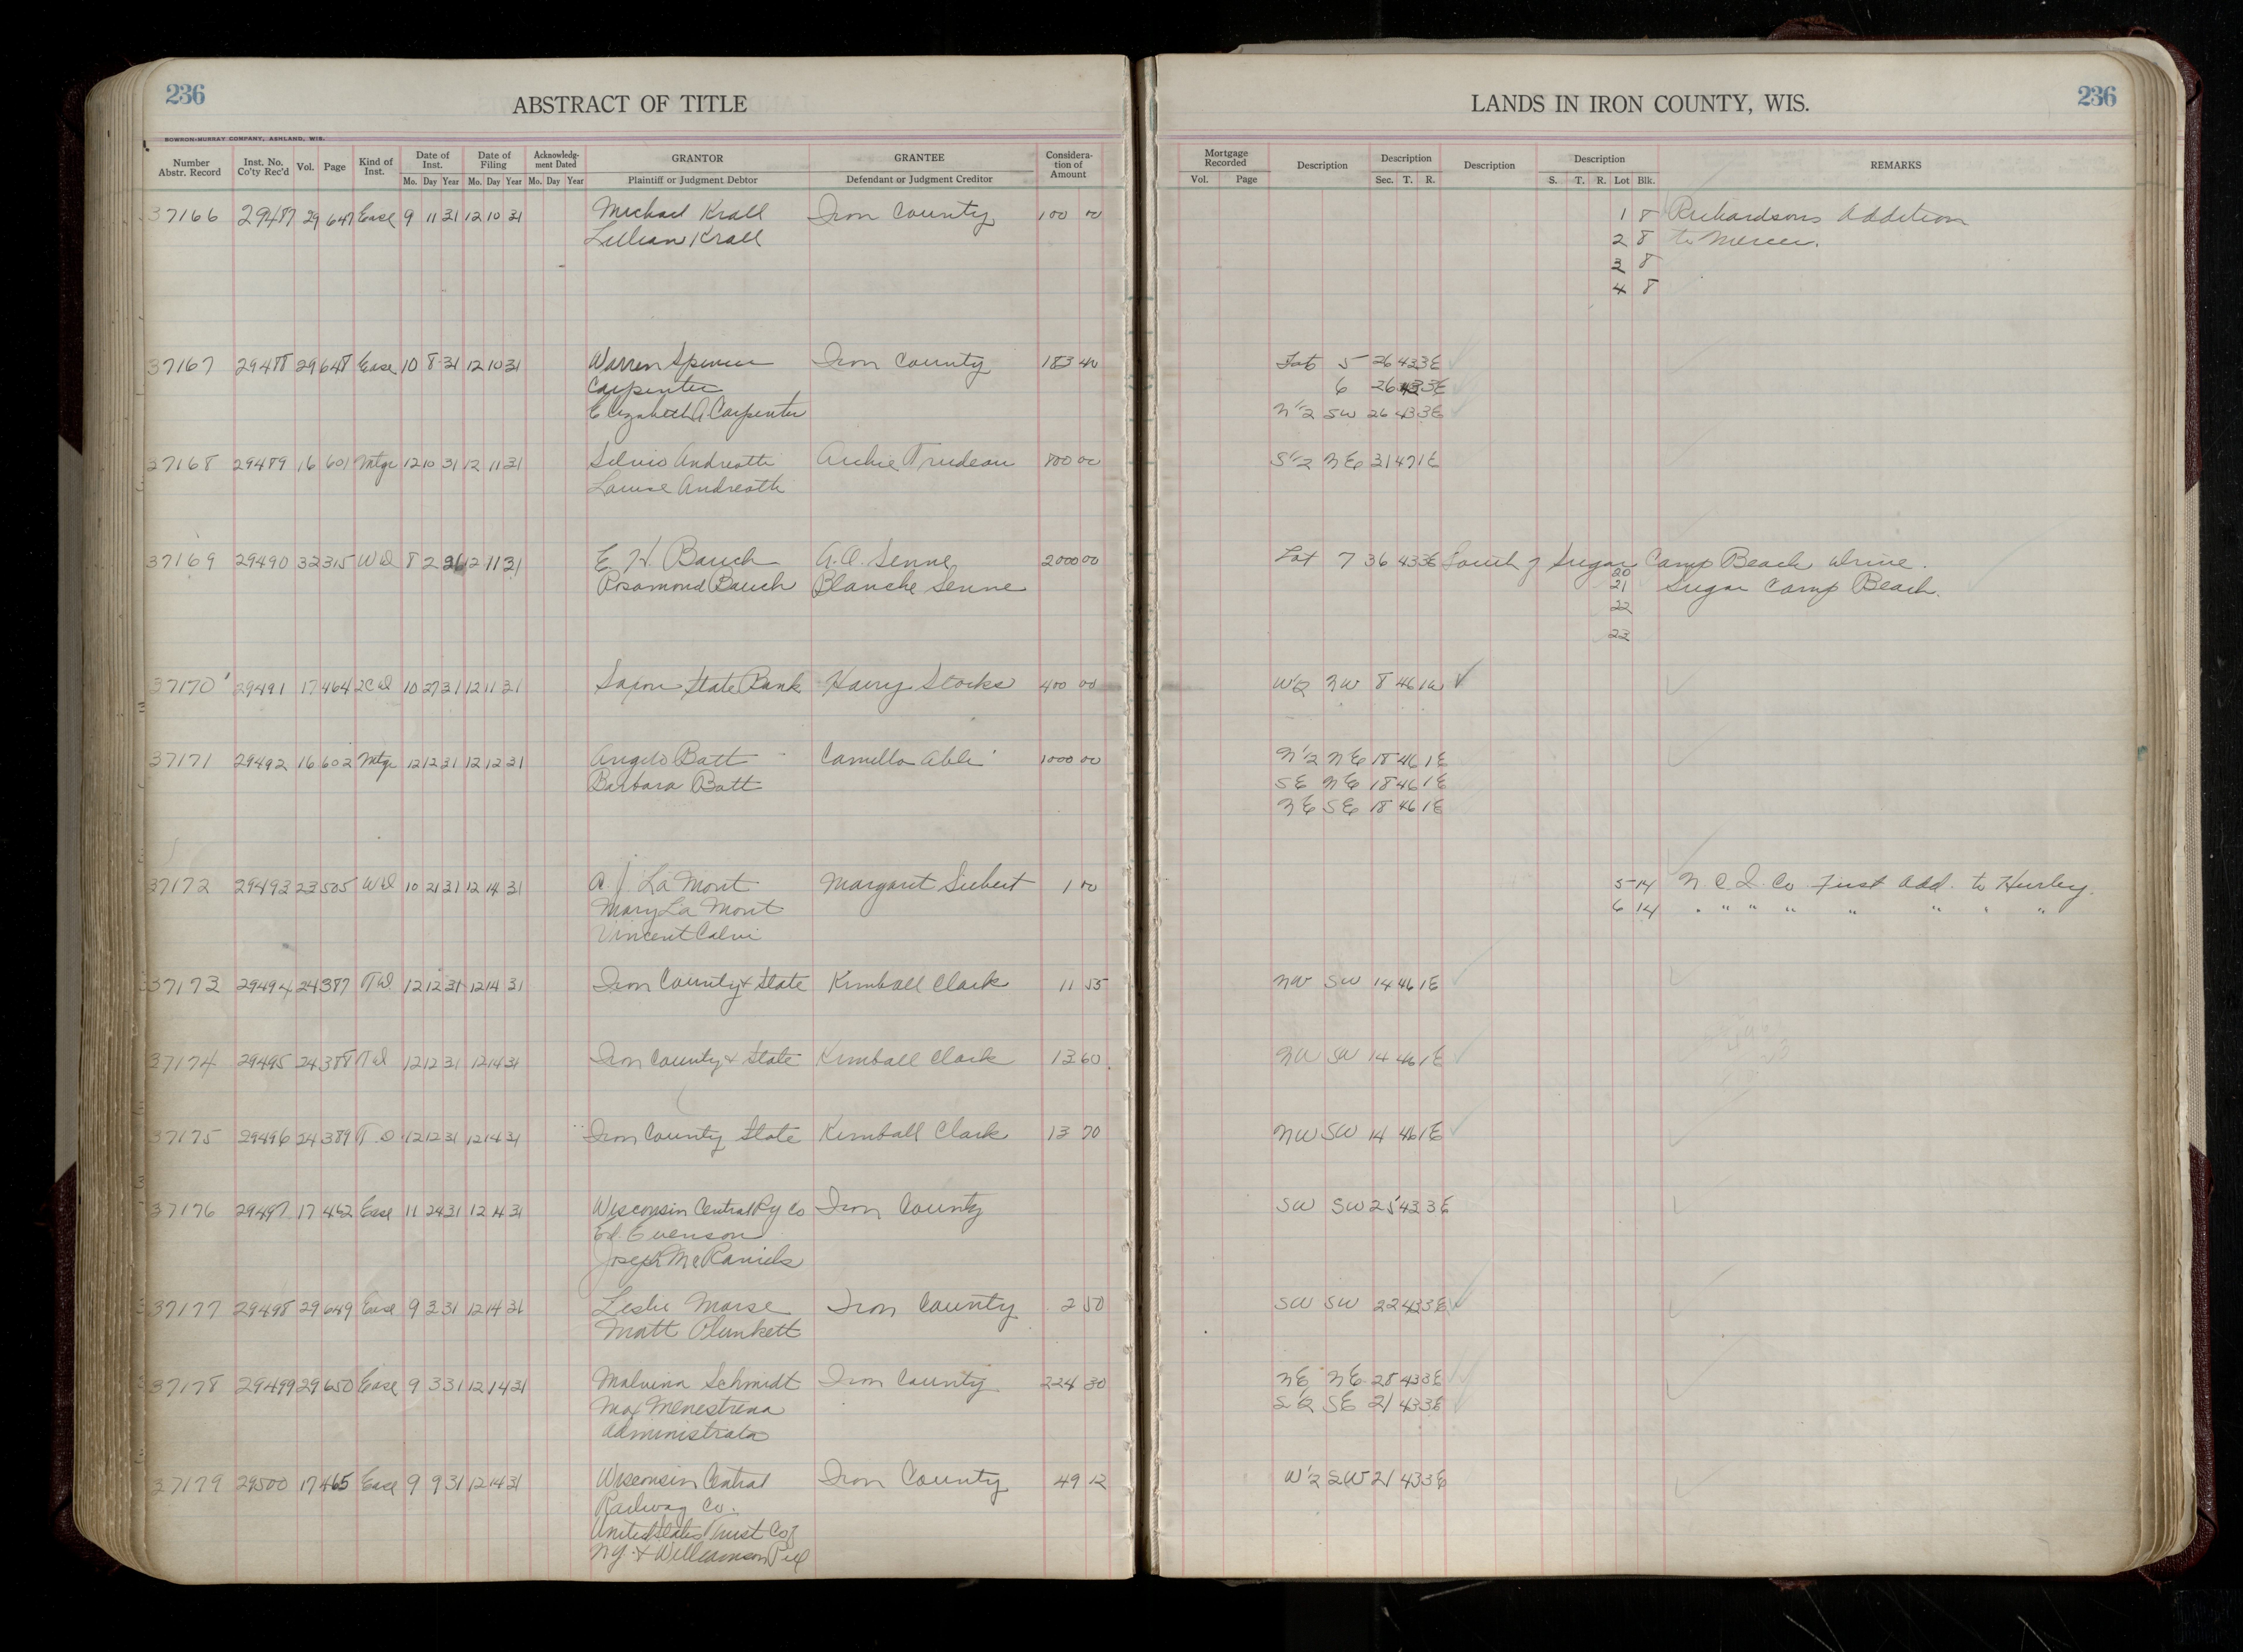 236
ABSTRACT OF TITLE
LANDS IN IRON COUNTY, WIS.
236
BOWRON-MURRAY COMPANY, ASHLAND, WIS.
Number Abstr. Record | Inst. No. Co'ty Rec'd | Vol. | Page | Kind of Inst. | Date of Inst. Mo. Day Year | Date of Filing Mo. Day Year | Acknowledg-ment Dated Mo. Day Year | GRANTOR Plaintiff or Judgment Debtor | GRANTEE Defendant or Judgment Creditor | Considera-tion of Amount | Mortgage Recorded Vol. Page | Description | Description Sec. T. R. | Description | Description S. T. R. Lot Blk. | REMARKS
37166 29487 29 647 Ease 9 11 31 12 10 31 Michael Krall Iron County 100 00 1 8 Richardsons Addition
Lillian Krall 2 8 to Mercer.
3 8
4 8
37167 29488 29 648 Ease 10 8 31 12 10 31 Warren Spencer Iron County 183 40 Lot 5 26 43 3E
Carpenter 6 26 43 3E
Elizabeth A Carpenter N1/2 SW 26 43 3E
37168 29489 16 601 Mtge 12 10 31 12 11 31 Silvio Andreatti Archie Trudeau 800 00 S1/2 NE 31 47 1E
Louise Andreatti
37169 29490 32 315 WD 8 2 12 11 31 E. H. Bauch A. O. Senne 2000 00 Lot 7 36 43 3E South of Sugar Camp Beach Drive.
20
Rosamond Bauch Blanche Senne 21 Sugar Camp Beach.
22
23
37170 29491 17 464 2CD 10 27 31 12 11 31 Saxon State Bank Harry Stocks 400 00 W1/2 NW 8 46 1W
37171 29492 16 602 Mtge 12 12 31 12 12 31 Angelo Batt Camillo Abli 1000 00 N1/2 NE 18 46 1E
Barbara Batt SE NE 18 46 1E
NE SE 18 46 1E
37172 29493 23 505 WD 10 21 31 12 14 31 A. J. La Mont Margaret Siebert 1 00 5 14 N C I. Co First Add. to Hurley.
Mary La Mont 6 14 " " " " " " " "
Vincent Calvi
37173 29494 24 387 TD 12 12 31 12 14 31 Iron County & State Kimball Clark 11 55 NW SW 14 46 1E
37174 29495 24 388 TD 12 12 31 12 14 31 Iron County & State Kimball Clark 13 60 NW SW 14 46 1E
37175 29496 24 389 TD 12 12 31 12 14 31 Iron County State Kimball Clark 13 70 NW SW 14 46 1E
37176 29497 17 462 Ease 11 24 31 12 14 31 Wisconsin Central Ry Co Iron County SW SW 25 43 3E
Ed. Evenson
Joseph McDaniels
37177 29498 29 649 Ease 9 3 31 12 14 31 Leslie Morse Iron County 2 50 SW SW 22 43 3E
Matt Plunkett
37178 29499 29 650 Ease 9 3 31 12 14 31 Malvina Schmidt Iron County 224 30 NE NE 28 43 3E
Max Menestrina S1/2 SE 21 43 3E
Administrator
37179 29500 17 465 Ease 9 9 31 12 14 31 Wisconsin Central Iron County 49 12 W1/2 SW 21 43 3E
Railway Co.
United States Trust Co of
NY. & Williamson Pell